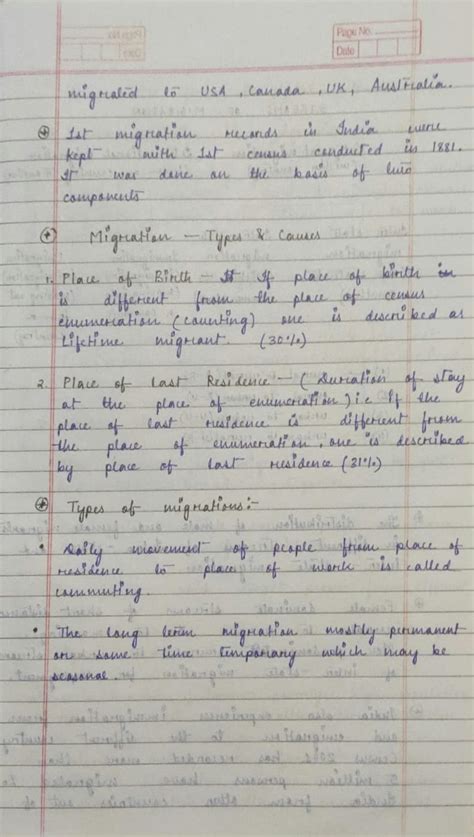 Page No.
Date
migrated to USA, Canada, UK, Australia.
1st migration records in India were
kept with 1st census conducted in 1881.
It was done on the basis of two
components
Migration - Types & Causes
1. Place of Birth - If place of birth
is different from the place of census
enumeration (counting) one is described as
Lifetime migrant. (30%)
2. Place of Last Residence - (Duration of stay
at the place of enumeration) i.e If the
place of last residence is different from
the place of enumeration, one is described
by place of last residence (31%)
Types of migrations:-
• Daily movement of people from place of
residence to place of work is called
commuting.
• The long term migration mostly permanent
or some time temporary which may be
seasonal.